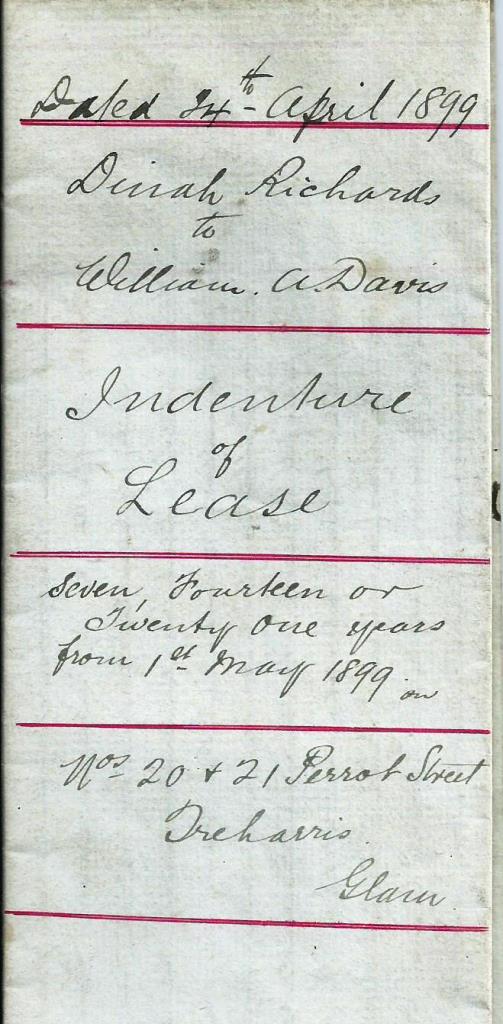 Dated 24th April 1899
Dinah Richards
to
William. A. Davis
Indenture
of
Lease
Seven, Fourteen or
Twenty One years
from 1st May 1899
on
Nos 20 + 21 Perrot Street
Treharris
Glam